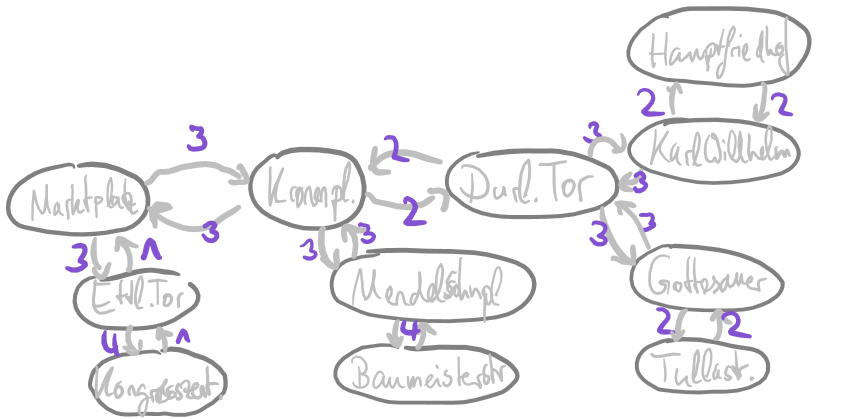 Hauptfriedhof
2
2
3
KarlWillhelm
3
2
3
Marktplatz
Kronenpl.
Durl. Tor
3
2
3
3
3
1
3
3
3
Ettl. Tor
Mendelsohnpl
Gottesauer
4
1
4
2
2
Kongresszent.
Baumeisterstr
Tullastr.